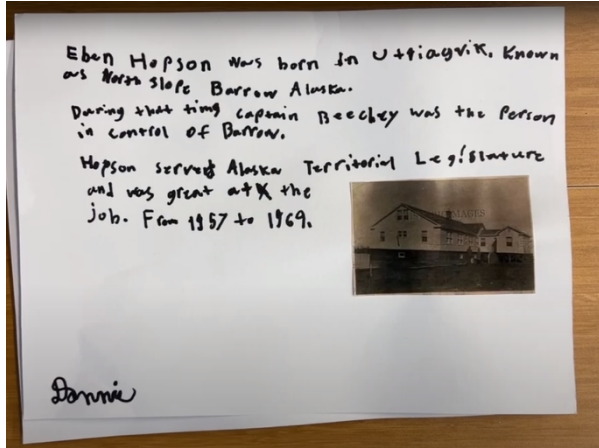 Eben Hopson was born in Uttiagvik. Known
as North Slope Barrow Alaska.
During that time Captain Beechey was the Person
in control of Barrow.
Hopson served Alaska Territorial Legislature
and was great at the
job. From 1957 to 1969.
IMAGES
Dannie